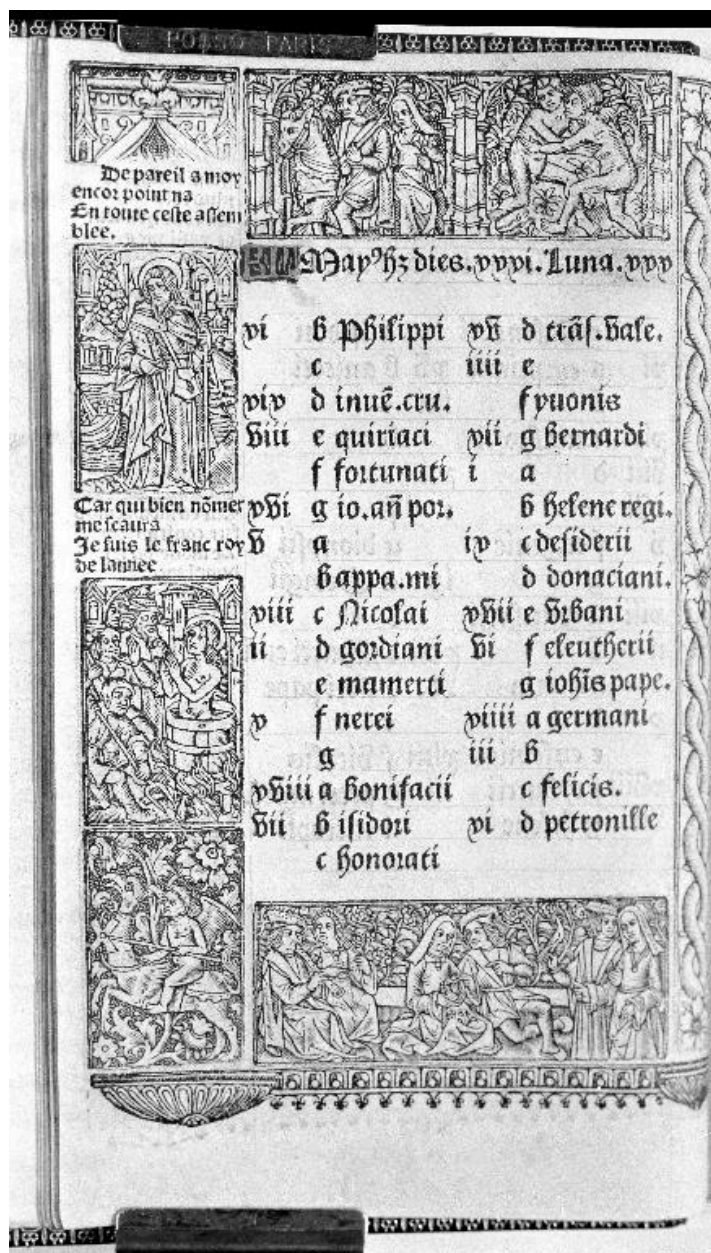 De pareil a moy
encor point na
En toute ceste assem
blee.
Car qui bien nõmer
me scaura
Je suis le franc roy
de lannee
Mayꝰ hꝫ dies. xxxi. Luna. xxx
xi b Philippi
c
xix d inuẽ. cru.
viii e quiriaci
f fortunati
xvi g io. añ por.
v a
b appa. mi
xiii c Nicolai
ii d gordiani
e mamerti
x f nerei
g
xviii a bonifacii
vii b isidori
c honorati
xv d trãs. vale.
iiii e
f yuonis
xii g bernardi
i a
b helene regi.
ix c desiderii
d donaciani.
xvii e vrbani
vi f eleutherii
g iohĩs pape.
xiiii a germani
iii b
c felicis.
xi d petronille